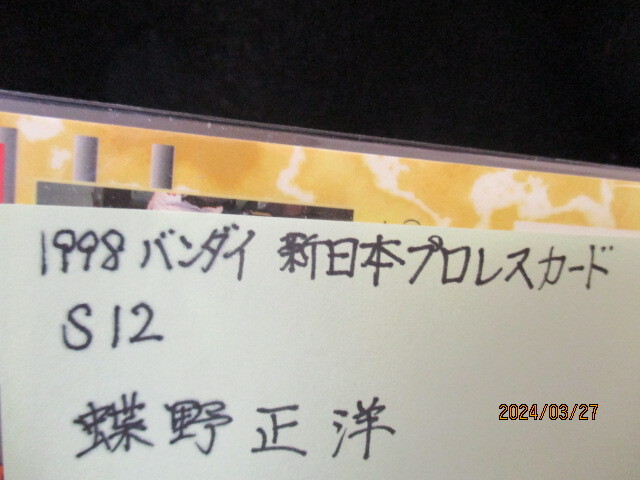 1998 バンダイ 新日本プロレスカード
S12
蝶野正洋
2024/03/27